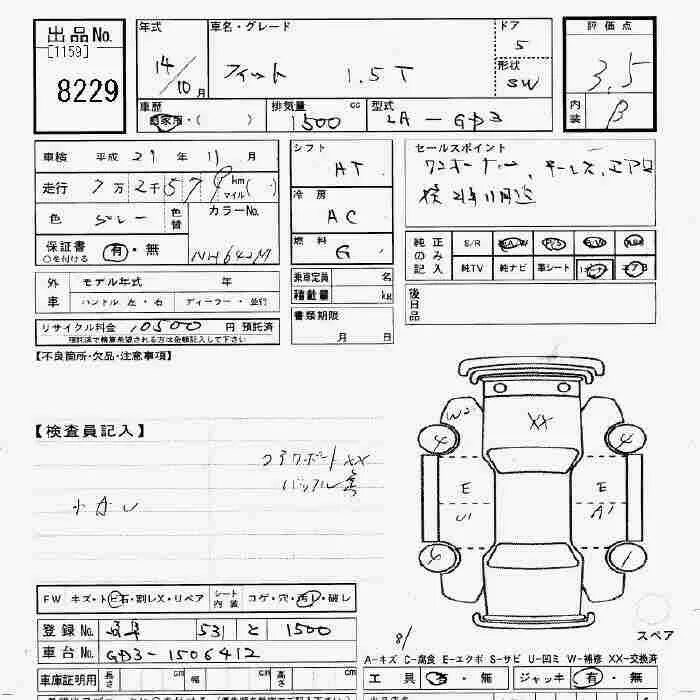 出品No. [1159] 8229
年式 14/10月
車名・グレード フィット 1.5T
ドア 5
形状 SW
評価点 3,5
内装 B
車歴 自家用・( )
排気量 cc 1500
型式 LA-GD3
車検 平成 21年 11月
走行 7万2千579 km マイル( )
色 グレー 色替 カラーNo. NH642M
保証書 ○を付ける 有・無
シフト AT
冷房 AC
燃料 G
乗車定員 名
積載量 kg
書類期限 月 日
セールスポイント
ワンオーナー、
検21年11月迄
純正のみ記入 S/R A/W P/S P/W
純TV 純ナビ 革シート エアB
後日品
外車 モデル年式 年
ハンドル 左・右 ディーラー・並行
リサイクル料金 10500 円 預託済
預託済で精算希望される方は金額記入して下さい
【不良箇所・欠品・注意事項】
【検査員記入】
コアサポートXX
小A U
XX
W2
4 4
E E
U1 A1
6 1
FW キズ・ト ビ石・割レX・リペア シート内装 コゲ・穴・汚レ・破レ
登録No. 岐阜 531 と 1500
車台No. GD3-1506412
8/
スペア
A-キズ C-腐食 E-エクボ S-サビ U-凹ミ W-補修 XX-交換済
工具 有・無 ジャッキ 有・無
車庫証明用 長さ cm 幅 cm 高さ cm